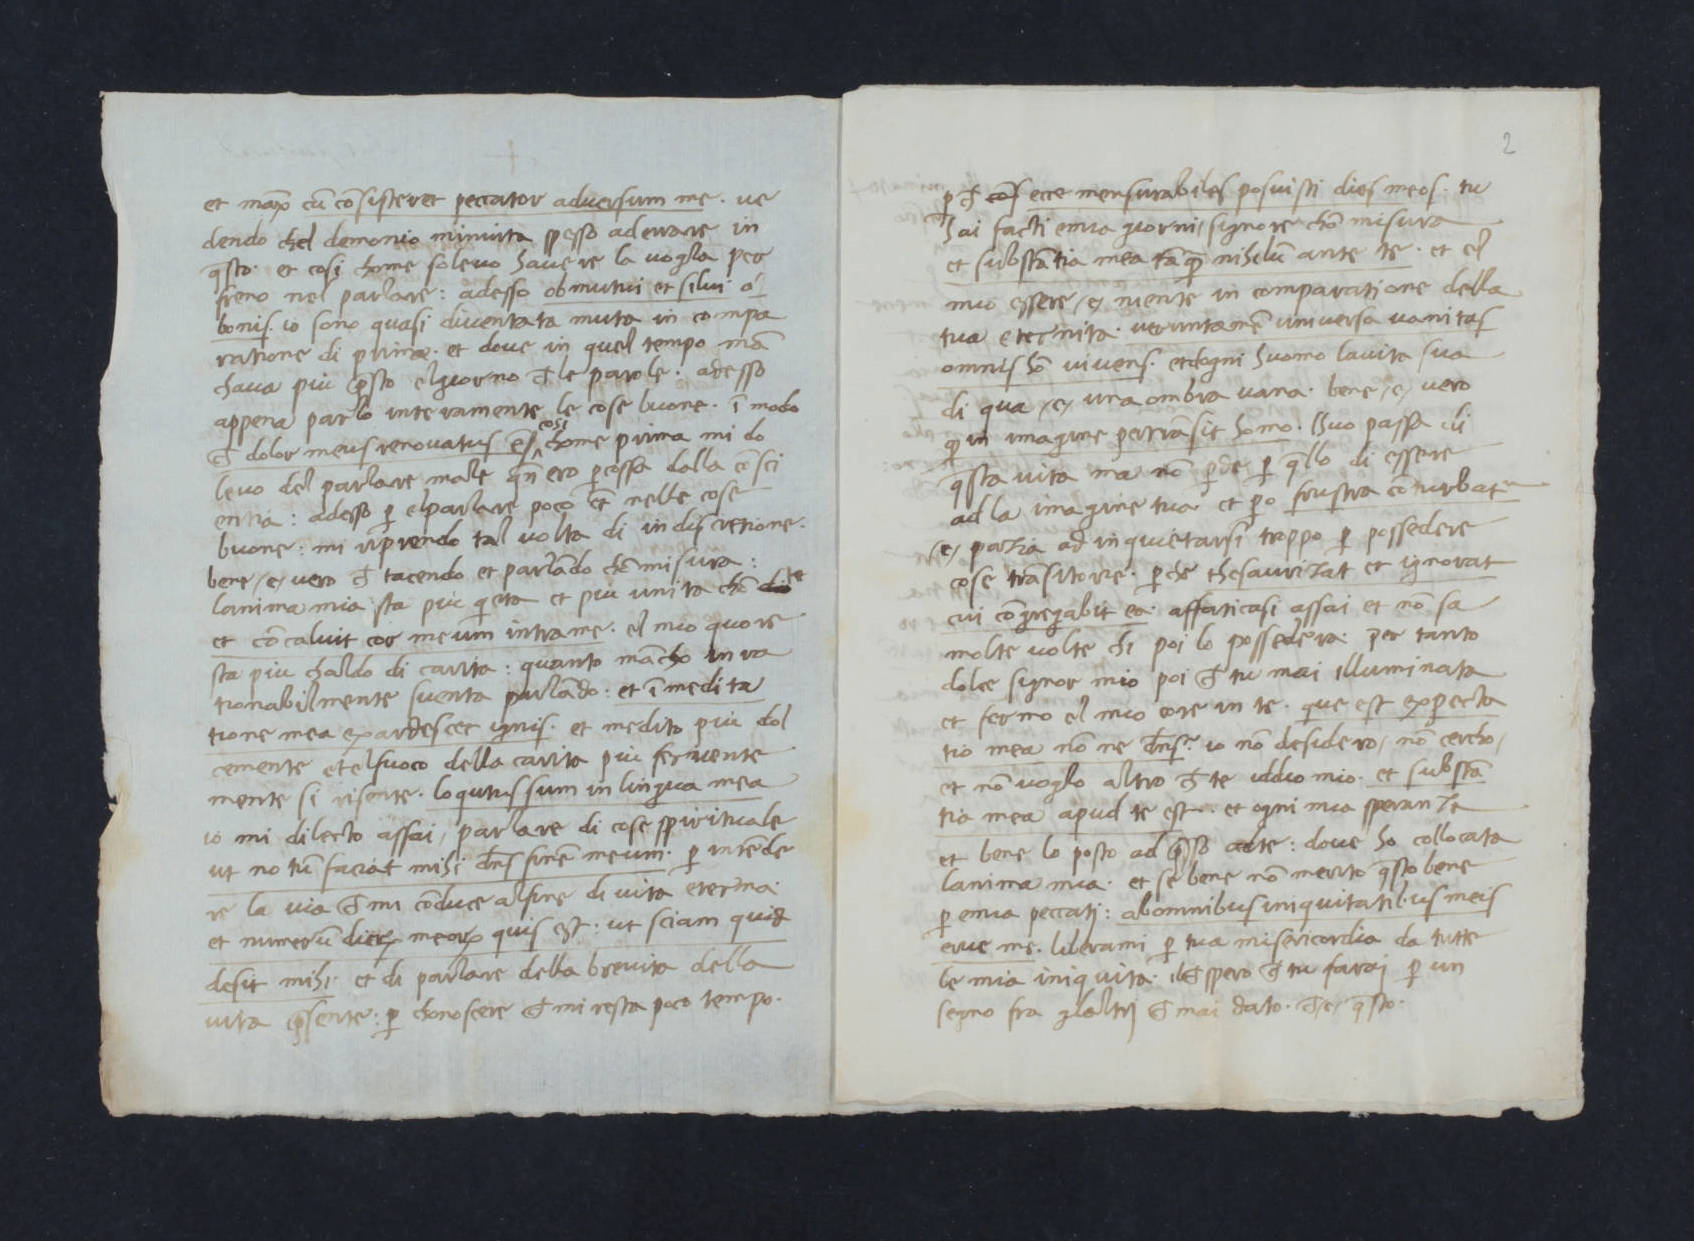 et maxᵒ cū cōsisteret peccator adversum me. ve
dendo chel demonio minvita spesso ad errare in
q̄sto. et cosi chome solevo havere la voglia per
freno nel parlare: adesso obmutui et silui á
bonis. io sono quasi diventata muta in compa
ratione di prima. et dove in quel tempo mā
chava più p̄sto elgiorno ch̄ le parole. adesso
appena parlo interamente le cose buone. ī modo
ch̄ dolor meus renovatus ē cosi chome prima mi do
levo del parlare male qn̄ ero p̄cossa dalla cōsci
entia: adesso p̄ elparlare poco et nelle cose
buone: mi riprendo tal volta di indiscretione.
bene /e/ vero ch̄ tacendo et parlādo chō misura:
lanima mia sta più q̄eta et più unita chō te
et cōcaluit cor meum intra me. el mio quore
sta più chaldo di carita: quanto mācho in ra
tionabilmente sventa parlādo: et ī medita
tione mea exardescet ignis. et medito più dol
cemente et elfuoco della carita più fervente
mente si risente. loqutus sum in lingua mea
io mi dilecto assai, parlare di cose spirituale
ut no tū faciat mihi dn̄s finē meum. p̄ intēde
re la via ch̄ mi cōduce alfine di vita eterna.
et numerū dierꝝ meorꝝ quis est. ut sciam quid
desit mihi. et di parlare della brevita della
vita p̄sente: p̄ chonoscere ch̄ mi resta poco tempo.
2
p̄ ch̄ ecce mensurabiles posuisti dies meos. tu
hai facti e mia giorni, signore chō misura
et substātia mea tāq̄ nihilū ante te. et el
mio essere /e/ niente in comparatione della
tua eternita. veruntamē universa vanitas
omnis hō vivens. et dogni huomo lavita sua
di qua /e/ una ombra vana. bene /e/ vero
q̄ in imagine pertrāsit homo. lhuo passa di
q̄sta vita ma nō p̄de p̄ q̄llo di essere
ad la imagine tua et p̄o frustra cōturbat
/e/ pazia ad inquietarsi troppo p̄ possedere
cose trāsitorie. p̄che thesaurizat et ignorat
cui cōgregabit ea. affaticasi assai et nō sa
molte volte chi poi lo possedera. per tanto
dolce signor mio poi ch̄ tu mai illuminata
et fermo el mio core in te. que est expecta
tio mea nōne dn̄s. io nō desidero, nō cercho,
et nō voglo altro ch̄ te iddio mio. et substā
tia mea apud te est. et ogni mia speranza
et bene lo posto ad p̄sso adte: dove ho collocata
lanima mia. et se bene nō merito q̄sto bene
p̄ e mia peccati: ab omnibus iniquitatibus meis
erue me. liberami p̄ tua misericordia da tutte
le mia iniquita. ilch̄ spero ch̄ tu farai p̄ un
segno fra glaltrj ch̄ mai dato. ch̄ /e/ q̄sto.